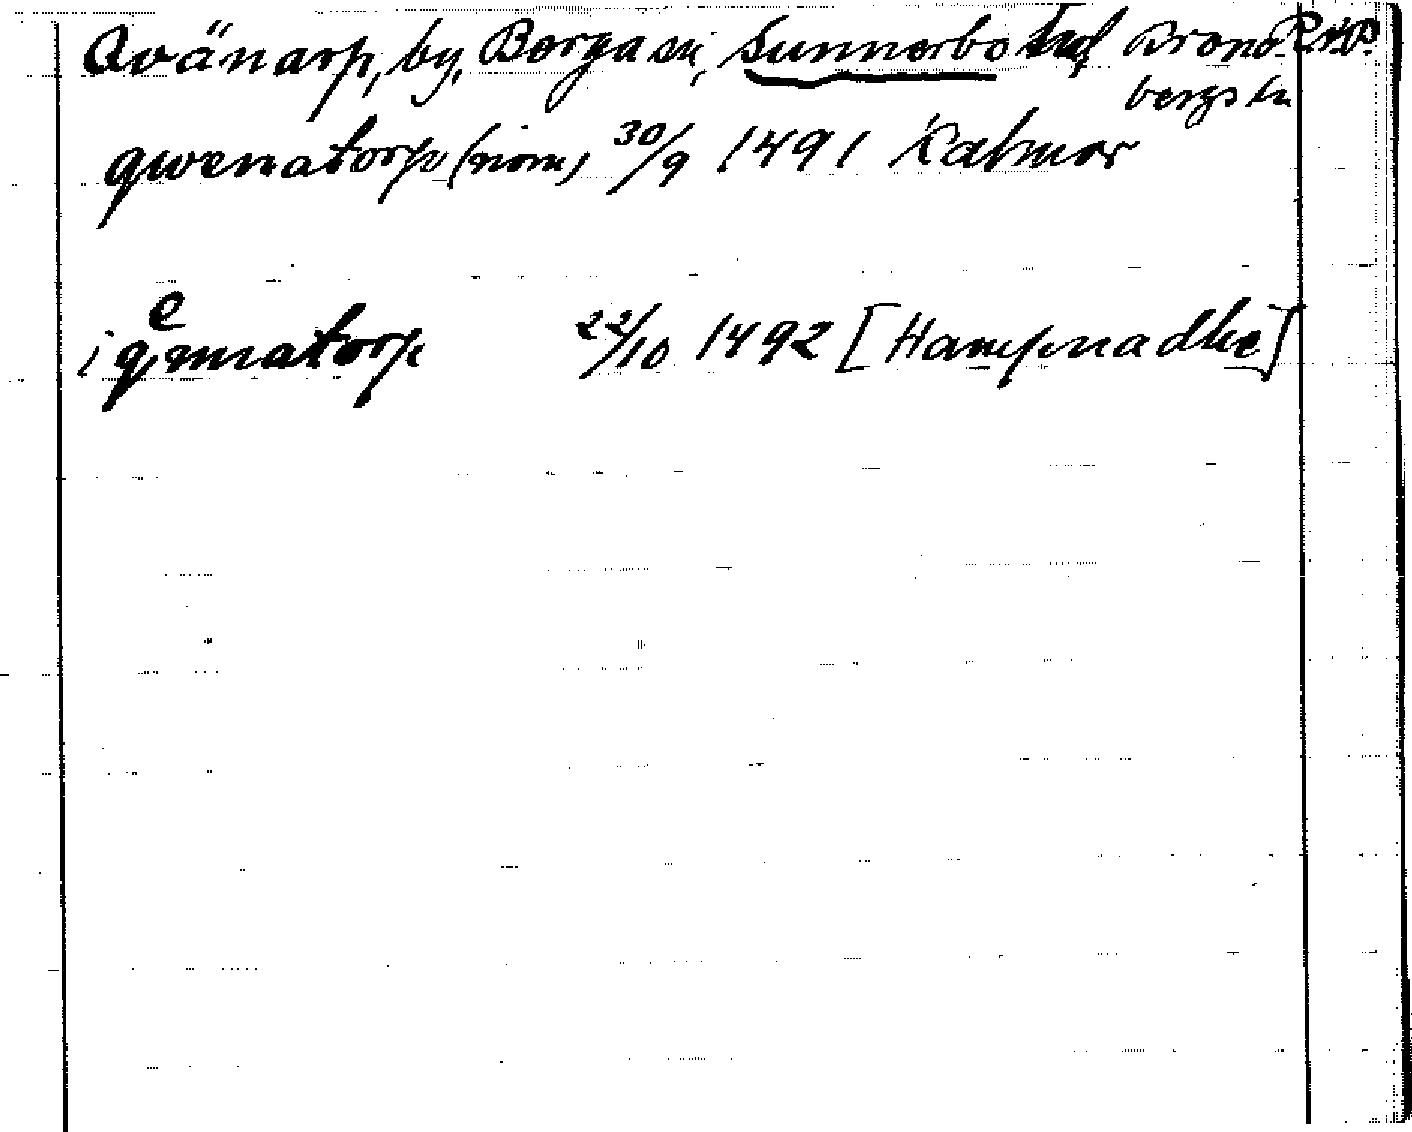 Qvänarp, by, Berga sn, Sunnerbo hd Krono-
bergs ln
qwenatorp (nom) 30/9 1491 Kalmar
i qennatorp 22/10 1492 [Hampnadhe]